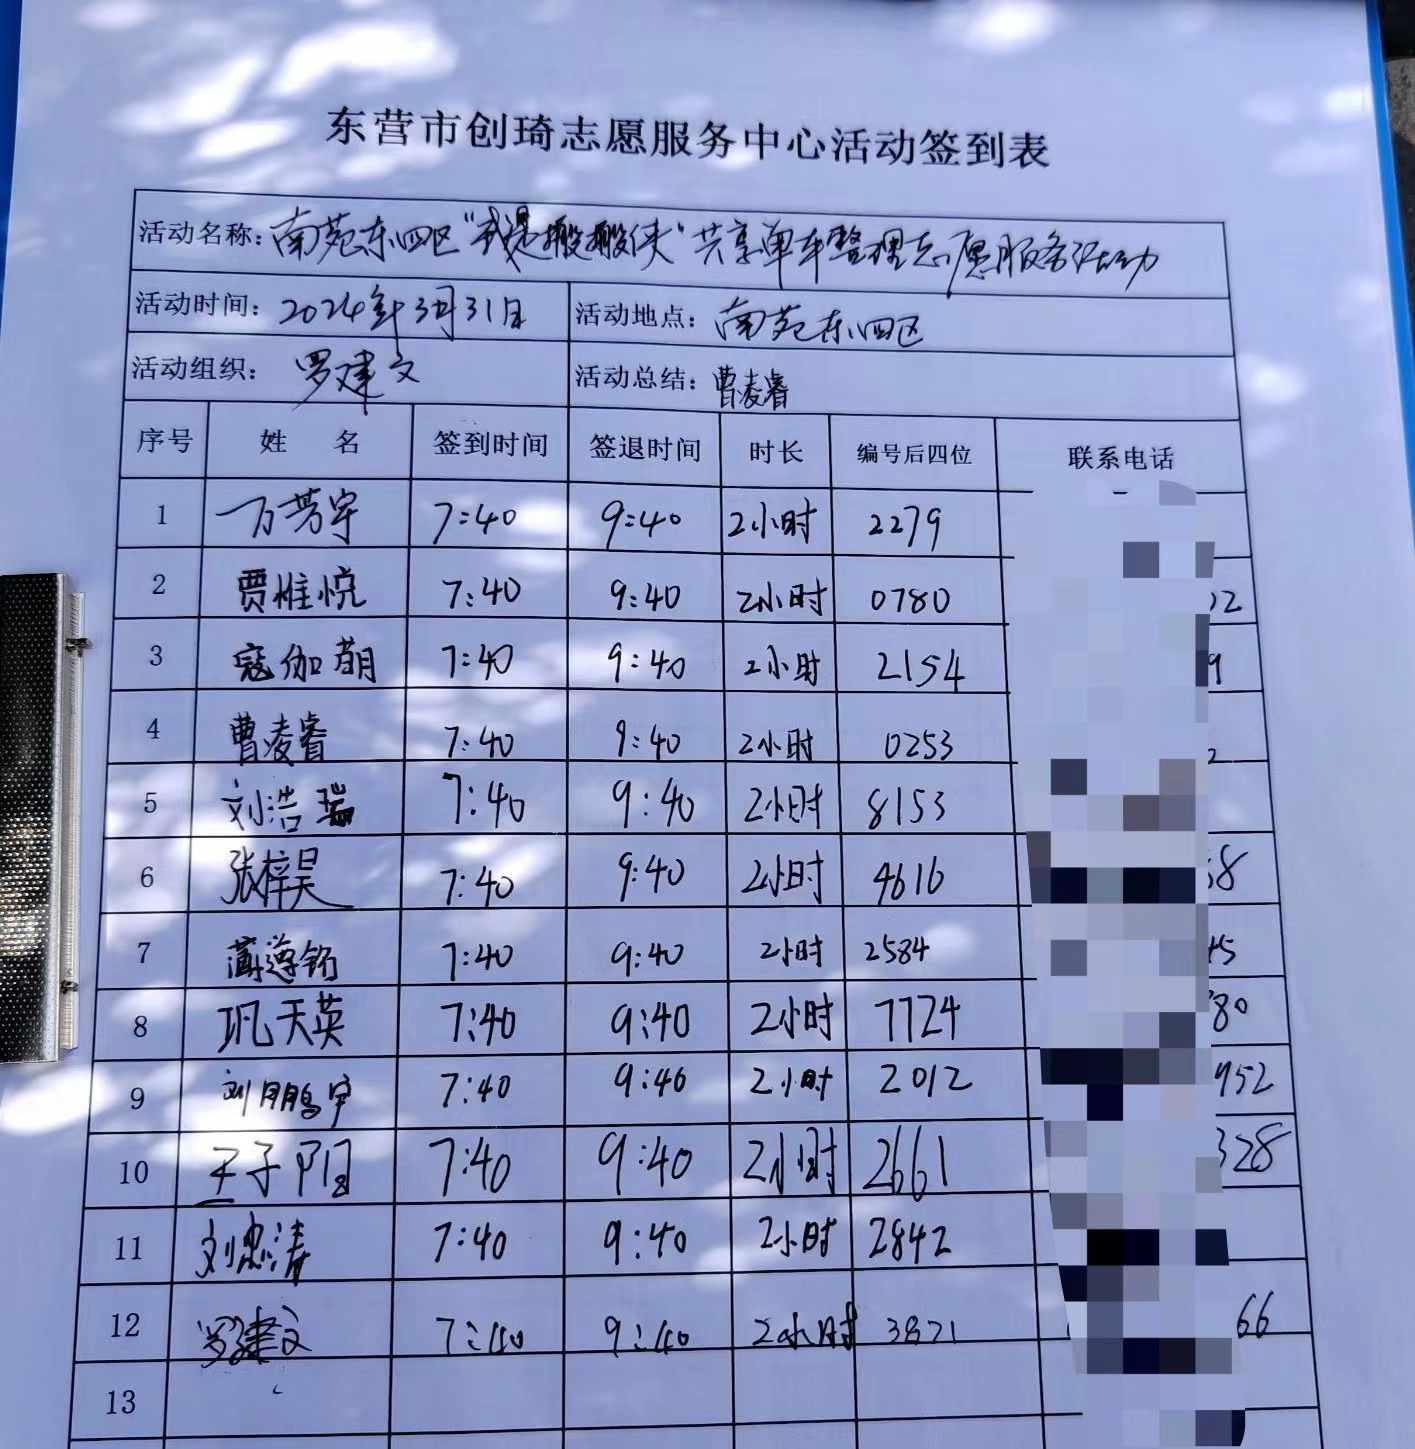 东营市创琦志愿服务中心活动签到表
活动名称：南苑东四区“我是搬搬侠”共享单车整理志愿服务活动
活动时间：2024年3月31日 活动地点：南苑东四区
活动组织：罗建文 活动总结：曹凌睿
序号 姓名 签到时间 签退时间 时长 编号后四位 联系电话
1 万芳宇 7:40 9:40 2小时 2279
2 贾惟悦 7:40 9:40 2小时 0780 2
3 寇伽萌 7:40 9:40 2小时 2154 9
4 曹凌睿 7:40 9:40 2小时 0253 2
5 刘浩瑞 7:40 9:40 2小时 8153
6 张梓昊 7:40 9:40 2小时 4616 8
7 7:40 9:40 2小时 2584 45
8 巩天英 7:40 9:40 2小时 7724 80
9 刘鹏宇 7:40 9:40 2小时 2012 952
10 王子阳 7:40 9:40 2小时 2661 328
11 刘忠涛 7:40 9:40 2小时 2842
12 罗建文 7:40 9:40 2小时 3871 66
13